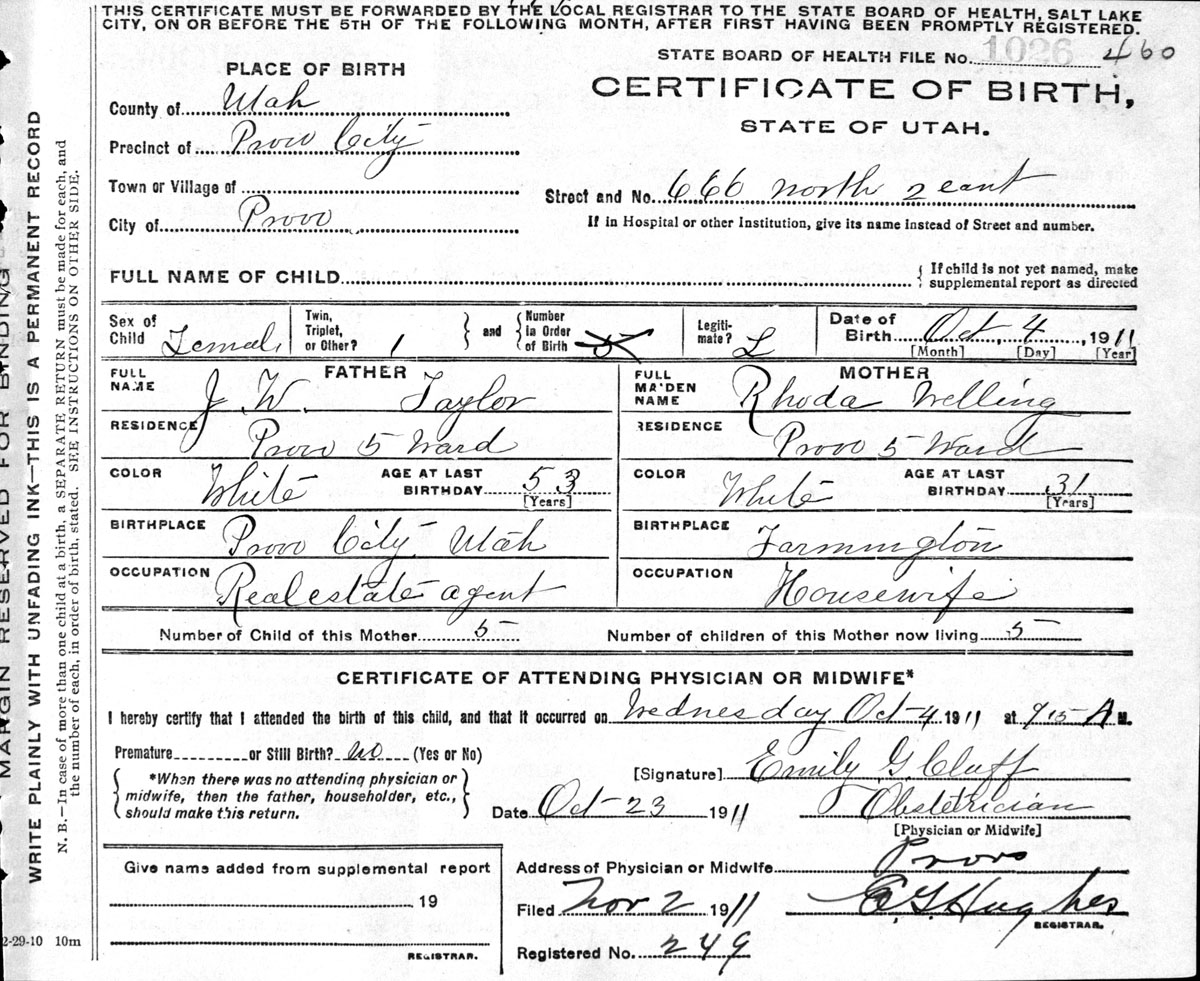 THIS CERTIFICATE MUST BE FORWARDED BY THE LOCAL REGISTRAR TO THE STATE BOARD OF HEALTH, SALT LAKE
CITY, ON OR BEFORE THE 5TH OF THE FOLLOWING MONTH, AFTER FIRST HAVING BEEN PROMPTLY REGISTERED.
STATE BOARD OF HEALTH FILE No. 1026 460
PLACE OF BIRTH
CERTIFICATE OF BIRTH,
STATE OF UTAH.
County of Utah
Precinct of Provo City
Town or Village of
City of Provo
Street and No. 666 north 2 east
If in Hospital or other Institution, give its name instead of Street and number.
FULL NAME OF CHILD
{ If child is not yet named, make
supplemental report as directed
Sex of Child Female
Twin, Triplet, or Other? 1
} and { Number in Order of Birth 5
Legiti-mate? L
Date of Birth Oct. 4, 1911
[Month] [Day] [Year]
FATHER
FULL NAME J. W. Taylor
RESIDENCE Provo 5 Ward
COLOR White AGE AT LAST BIRTHDAY 53 [Years]
BIRTHPLACE Provo City Utah
OCCUPATION Real estate agent
MOTHER
FULL MAIDEN NAME Rhoda Welling
RESIDENCE Provo 5 Ward
COLOR White AGE AT LAST BIRTHDAY 31 [Years]
BIRTHPLACE Farmington
OCCUPATION Housewife
Number of Child of this Mother 5 Number of children of this Mother now living 5
CERTIFICATE OF ATTENDING PHYSICIAN OR MIDWIFE*
I hereby certify that I attended the birth of this child, and that it occurred on Wednesday Oct-4 1911 at 9 15 A M.
Premature or Still Birth? No (Yes or No)
{ *When there was no attending physician or
midwife, then the father, householder, etc.,
should make this return. }
[Signature] Emily G. Cluff
Date Oct-23 1911 Obstetrician
[Physician or Midwife]
Address of Physician or Midwife Provo
Filed Nov 2 1911 E. G. Hughes
REGISTRAR.
Registered No. 249
Give name added from supplemental report
19
REGISTRAR.
MARGIN RESERVED FOR BINDING
WRITE PLAINLY WITH UNFADING INK—THIS IS A PERMANENT RECORD
N. B.—In case of more than one child at a birth, a SEPARATE RETURN must be made for each, and
the number of each, in order of birth, stated. SEE INSTRUCTIONS ON OTHER SIDE.
2-29-10 10m